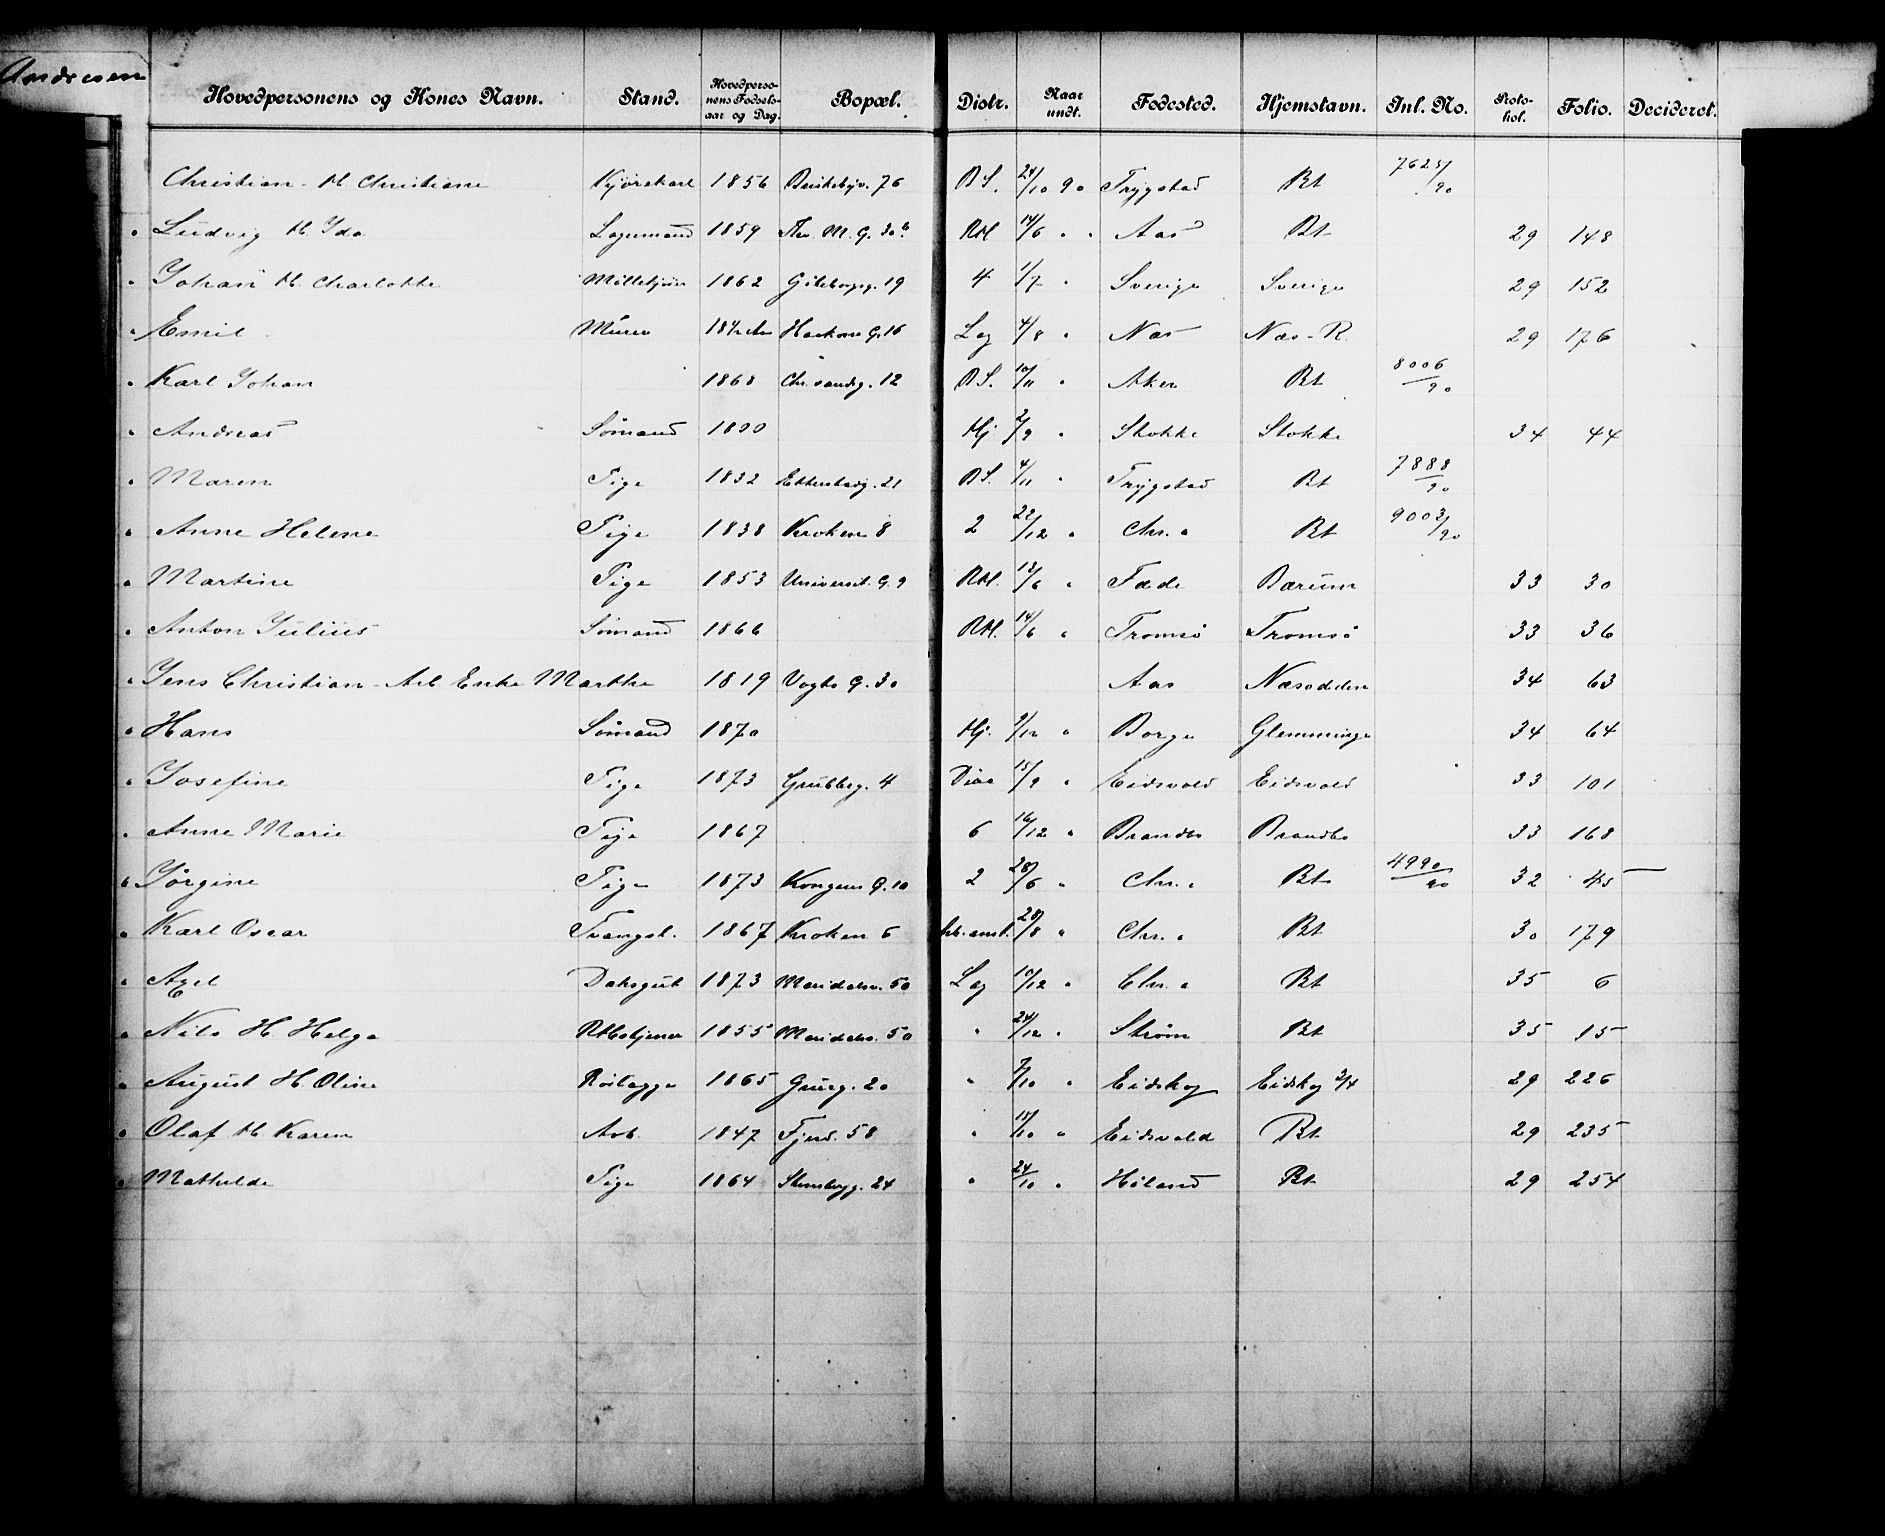 Andresen
Hovedpersonens og Kones Navn. Stand. Hovedpersonens Fødselsaar og Dag. Bopæl. Distr. Naar undt. Fødested. Hjemstavn. Inl. No. Protokol. Folio. Decideret.
Christian H Christiane Kjørekarl 1856 76 B.S. 24/10 90 Trygstad Bt 7625/90
" Ludvig H. Ida Lagermand 1859 Thv. M. G. 30b RM 14/6 " " Aas Bt 29 148
" Johan H. Charlotte 1862 Gøteborgg. 19 4 1/7 " Sverige Sverige 29 152
" Emil Murer Haakons G. 16 Lag 4/8 " Næs Næs - R. 29 176
" Karl Johan 1868 Chr.sandsg. 12 B.S. 10/11 " Aker Bt 8006/90
" Andreas Sømand Hj 2/9 " Stokke Stokke 34 44
" Maren Pige 1832 Etterstadg. 21 B.S. 4/11 " Trygstad Bt 7888/90
" Anne Helene Pige 1838 Kroken 8 2 22/12 " Chr.a Bt 9003/90
" Martine Pige 1853 Universit. G. 9 RM. 13/6 " Bærum 33 30
" Anton Julius Sømand 1866 RM. 14/6 " Tromsø Tromsø 33 36
" Jens Christian - Arb Enke Marthe 1819 Vogts G. 30 Aas Næsodden 34 63
" Hans Sømand 1870 Hj. 9/12 " Borge Glemminge 34 64
" Josefine Pige 1873 Grubbeg. 4 Diac 15/9 " Eidsvold Eidsvold 33 101
" Anne Marie Pige 1867 6 16/12 " Brandbo Brandbo 33 168
" Jørgine Pige 1873 Kongens G. 10 2 28/6 " Chr.a Bt 4990/90 32 45 —
" Karl Oscar Tvangst. 1867 Kroken 6 28/8 " Chr.a Bt 30 179
" Axel Daksgut 1873 Maridalsv. 50 Lag 10/12 " Chr.a Bt 35 6
" Nils H Helga 1855 Maridalsv. 50 " 24/12 " Strøm Bt 35 15
" August H. Oline 1865 Grueg. 20 " 7/10 " Eidskog Eidskog 3/4 29 226
" Olaf H. Karen Arb. 1847 Fjerd. 58 " 11/10 " Eidsvold Bt 29 235
" Mathilde Pige 1864 Stensbergg. 24 " 24/10 " Høland Bt 29 254